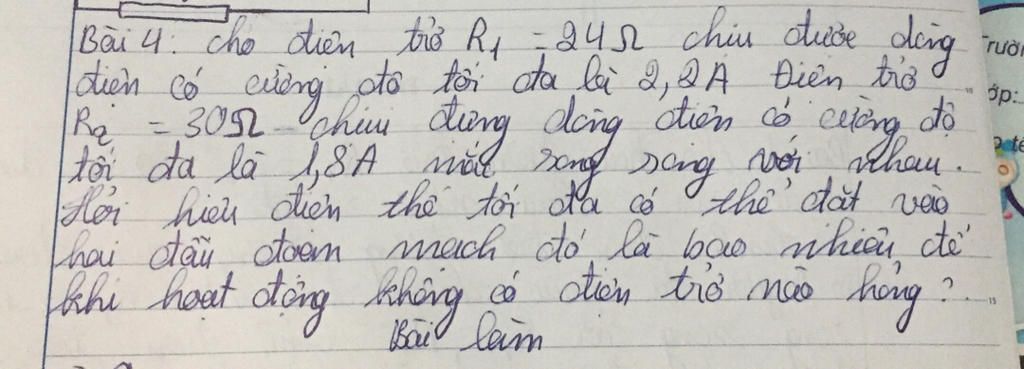 Bài 4: cho điên trở R1 = 24Ω chiu được dòng
điện có cường độ tối đa là 2,2A Điên trở
R2 = 30Ω chiu đưng dòng điên có cường độ
tối đa là 1,8A mắc song song với nhau.
Hỏi hiêu điên thế tối đa có thể đặt vào
hai đầu đoạn mạch đó là bao nhiêu để
khi hoạt động không có điên trở nào hỏng?
Bài làm
Trườn
ớp: